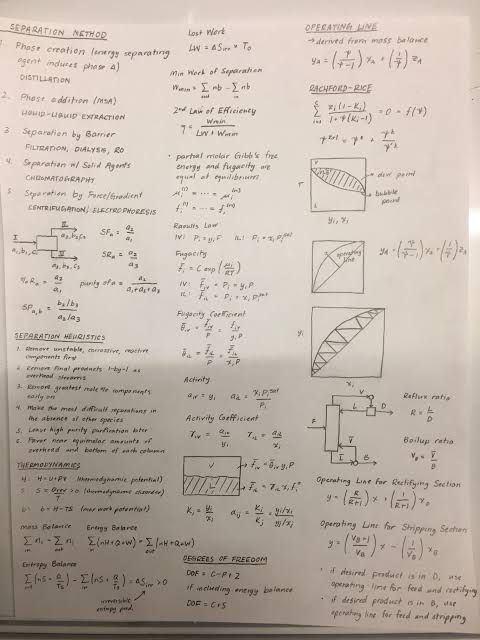 SEPARATION METHOD
1. Phase creation (energy separating
agent induces phase Δ)
DISTILLATION
2. Phase addition (MSA)
LIQUID-LIQUID EXTRACTION
3. Separation by Barrier
FILTRATION, DIALYSIS, RO
4. Separation w/ Solid Agents
CHROMATOGRAPHY
5. Separation by Force/Gradient
CENTRIFUGATION, ELECTROPHORESIS
I
a₁, b₁, c₁
II
a₂, b₂, c₂
III
a₃, b₃, c₃
SFₐ = a₂/a₁
SRₐ = a₂/a₃
%Rₐ = a₂/a₁ purity of a = a₂/(a₁+a₂+a₃)
SPₐ,b = (b₂/b₃)/(a₂/a₃)
SEPARATION HEURISTICS
1. Remove unstable, corrosive, reactive
components first
2. Remove final products 1-by-1 as
overhead streams
3. Remove greatest mole % components
early on
4. Make the most difficult separations in
the absence of other species
5. Leave high purity purification later
6. Favor near equimolar amounts of
overhead and bottom of each column
THERMODYNAMICS
H = U + PV (thermodynamic potential)
(thermodynamic disorder)
b = H - TS (max work potential)
Mass Balance Energy Balance
Entropy Balance
= ΔSirr > 0
irreversible
entropy prod.
Lost Work
LW = ΔSirr × T₀
Min Work of Separation
Wmin = Σ nb - Σ nb
2nd Law of Efficiency
η = Wmin/(LW + Wmin)
• partial molar Gibb's free
energy and fugacity are
equal at equilibrium
μᵢ⁽¹⁾ = ... = μᵢ⁽ⁿ⁾
fᵢ⁽¹⁾ = ... = fᵢ⁽ⁿ⁾
Raoults Law
Fugacity
f̄ᵢ = C exp(μᵢ/RT)
Fugacity Coefficient
Activity
Activity Coefficient
V
L
Kᵢ = yᵢ/xᵢ αᵢⱼ = Kᵢ/Kⱼ = (yᵢ/xᵢ)/(yⱼ/xⱼ)
DEGREES OF FREEDOM
DOF = C - P + 2
if including energy balance
DOF = C + 5
OPERATING LINE
→ derived from mass balance
RACHFORD-RICE
Σ zᵢ(1-Kᵢ)/(1+Ψ(Kᵢ-1)) = 0 = f(Ψ)
V
L
T
yᵢ, xᵢ
dew point
bubble
point
operating
line
yᵢ
xᵢ
F
V
L
D
L̄
V̄
B
Reflux ratio
R = L/D
Boilup ratio
V_B = V̄/B
Operating Line for Rectifying Section
y = (R/(R+1)) x + (1/(R+1)) x_D
Operating Line for Stripping Section
y = ((V_B+1)/V_B) x - (1/V_B) x_B
• if desired product is in D, use
operating line for feed and rectifying
• if desired product is in B, use
operating line for feed and stripping